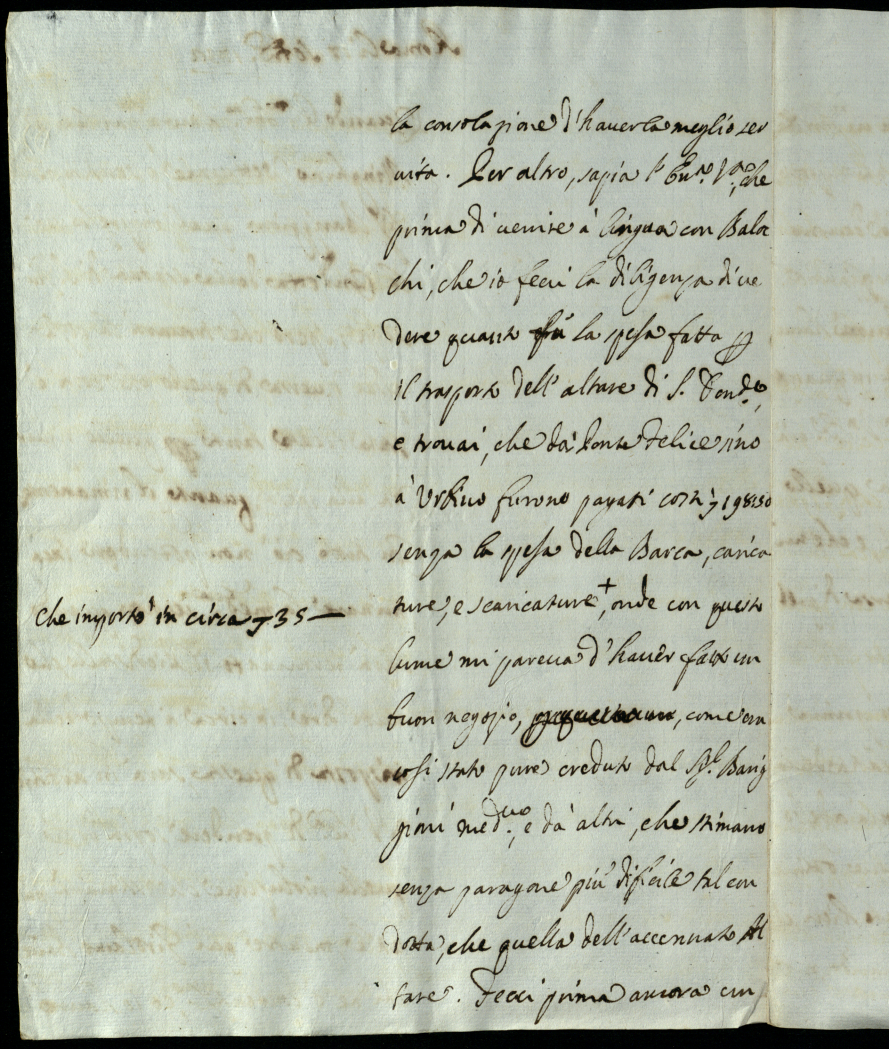 la consolazione d'hauerla meglio ser
uita. Per altro, sapia l'Em.ª V.ª, che
prima di uenire à lingua con Balo
chi, che io feci la diligenza di ue
dere quanto fù la spesa fatta p
il trasporto dell'altare di S.
e trouai, che dà Ponte Felice sino
à Urbino furono pagati costì 198:50
senza la spesa della Barca, carica
che importò in circa 35 —
ture, e scaricature +, onde con questo
lume mi pareua d'hauer fatto un
buon negozio, come era
così stato pure creduto dal Sig.r Barig
gioni med.mo, e dà altri, che stimano
senza paragone più dificile tal con
dotta, che quella dell'accennato Al
tare. Feci prima ancora un